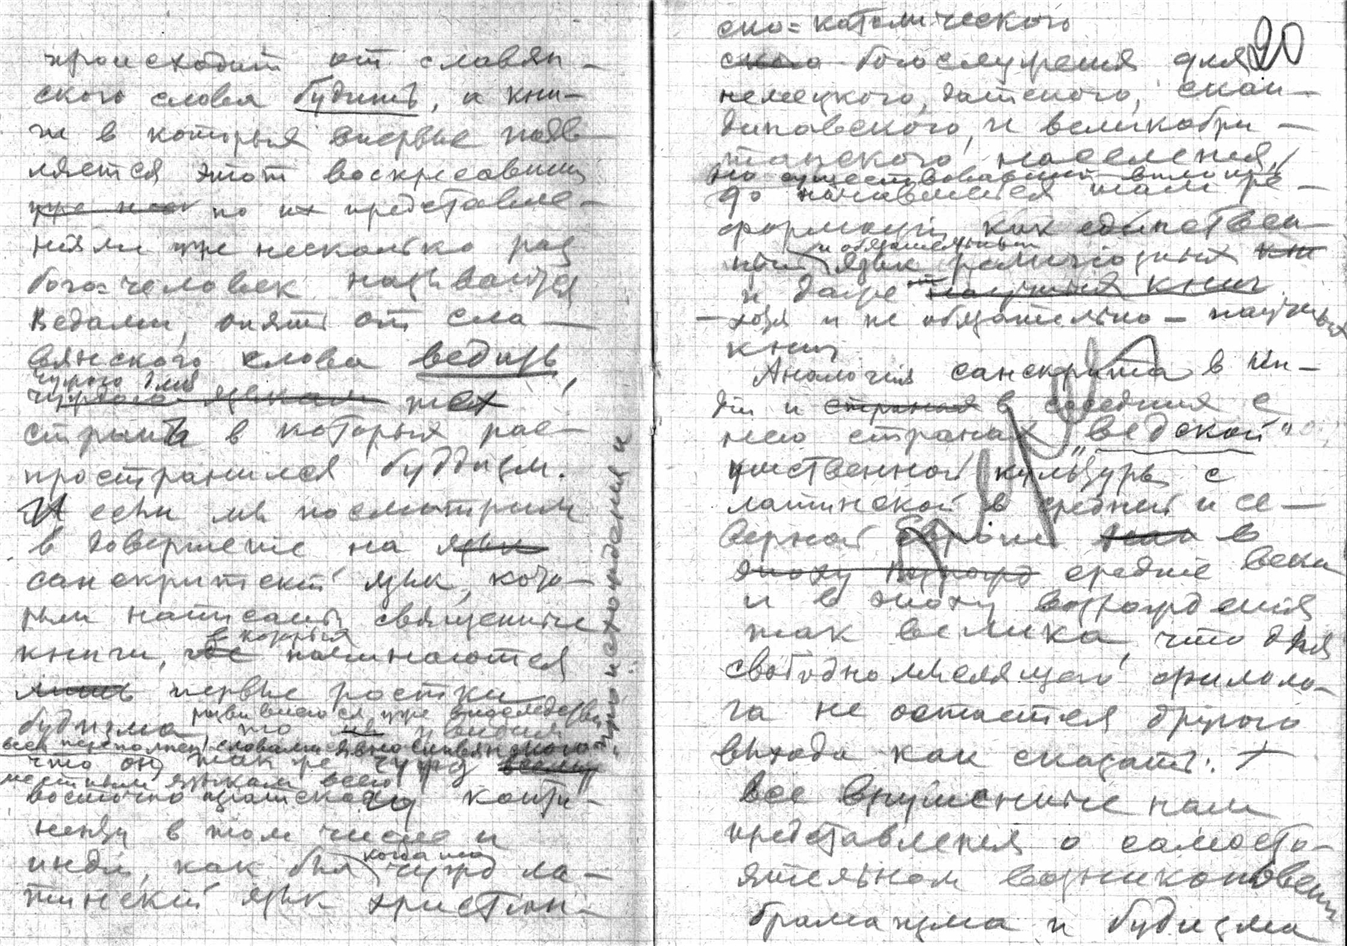 происходит от славян-
ского слова будить, а кни-
ги в которыя впервые появ-
ляется этот воскресавший
уже нес по их представле-
ниям уже несколько раз
бого=человек называются
Ведами, опять от сла-
вянского слова ведать,
чуждого для
чуждого тех
стран в которых рас-
пространился буддизм.
И если мы посмотрим
в довершение на язык
санскритский язык, кото-
рым написаны священные
книги, в которыя начинаются
лишь первые ростки
будизма, развившегося уже впоследствии
то увидим
весь переполнен словами явно славянского происхождения и
что он так же чужд всему
местным языкам всего
восточно азиатского конти-
ненту в том числе и
Индии, как был когда то чужд ла-
тинский язык христиан-
20
ско=католического
ского богослужения для
немецкого, датского, скан-
динавского, и великобри-
танского населения,
но существовавший вплоть
до начавшейся там ре-
формации как единствен-
ный и обязательный язык религиозных кн
и даже научных книг
— хотя и не обязательно — научных
книг
Аналогия санскрита в Ин-
дии и странах в соседних с
нею странах „ведской"
умственной культуры с
латинской в средней и се-
верной Европе в
эпоху Возрожд средние века
и в эпоху возрождения
так велика, что для
свободно мыслящего филоло-
га не остается другого
выхода как сказать:
все внушенные нам
представления о самосто-
ятельном возникновении
брамаизма и будизма